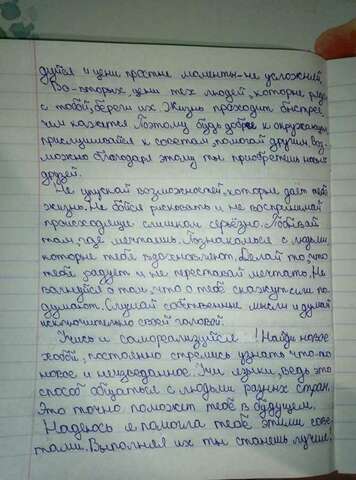 дуйся и цени простые моменты-не усложняй.
Во-вторых, цени тех людей, которые рядом
с тобой, береги их. Жизнь проходит быстрее
чем кажется. Поэтому будь добрее к окружающим
прислушивайся к советам, помогай другим. Воз-
можно благодаря этому ты приобретешь новых
друзей.
Не упускай возможностей, которые дает тебе
жизнь. Не бойся рисковать и не воспринимай
происходящее слишком серьёзно. Побывай
там, где мечтаешь. Познакомься с людьми
которые тебя вдохновляют. Делай то, что
тебя радует и не переставай мечтать. Не
волнуйся о том, что о тебе скажут или по-
думают. Слушай собственные мысли и думай
исключительно своей головой.
Учись и самореализуйся! Найди новое
хобби, постоянно стремись узнать что-то
новое и неизведанное. Учи языки, ведь это
способ общаться с людьми разных стран.
Это точно поможет тебе в будущем.
Надеюсь я помогла тебе этими сове-
тами. Выполняя их ты станешь лучше.